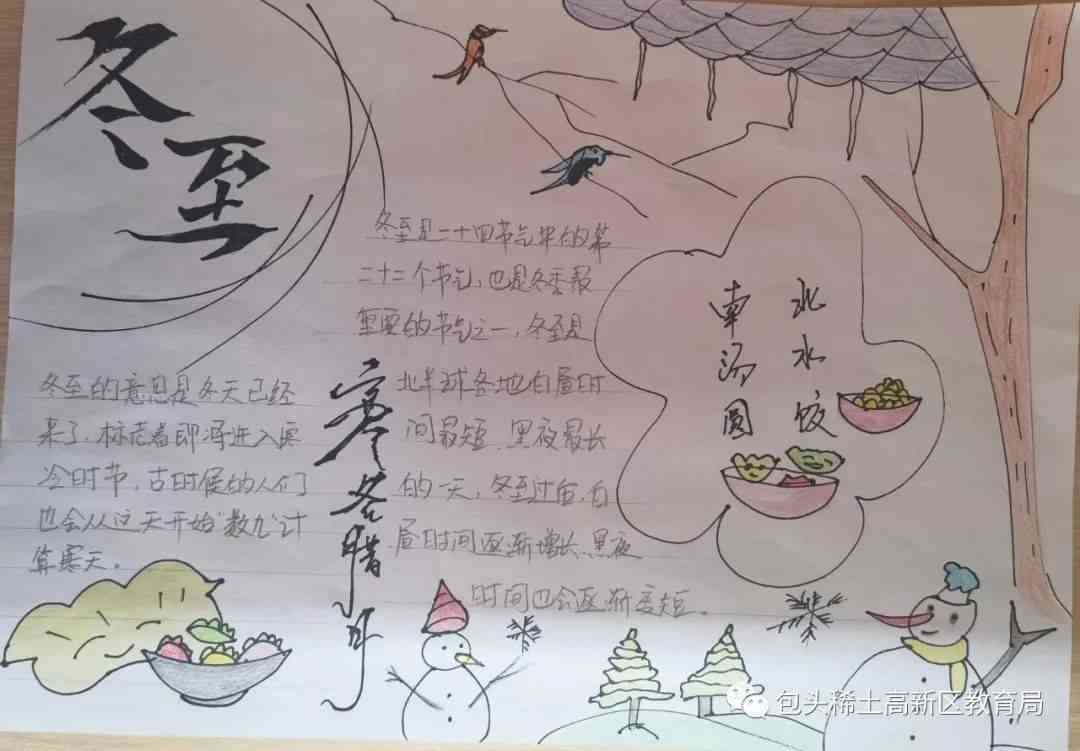 冬至
冬至的意思是冬天已经
来了，标志着即将进入寒
冷时节，古时候的人们
也会从这天开始"数九"计
算寒天。
冬至是二十四节气中的第
二十二个节气，也是冬季最
重要的节气之一，冬至是
北半球各地白昼时
间最短、黑夜最长
的一天，冬至过后，白
昼时间逐渐增长、黑夜
时间也会逐渐变短。
寒冬腊月
北水饺
南汤圆
包头稀土高新区教育局